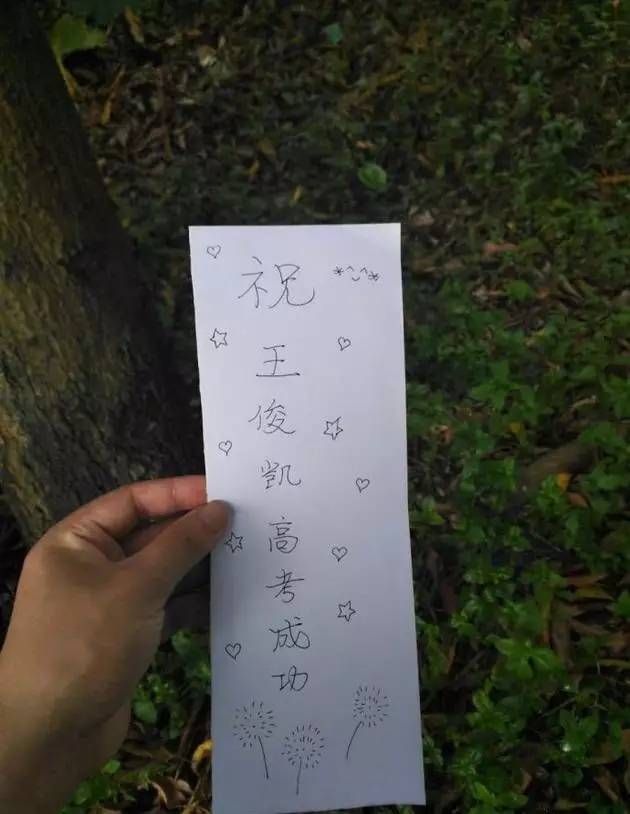 祝 *^_^*
王俊凯高考成功